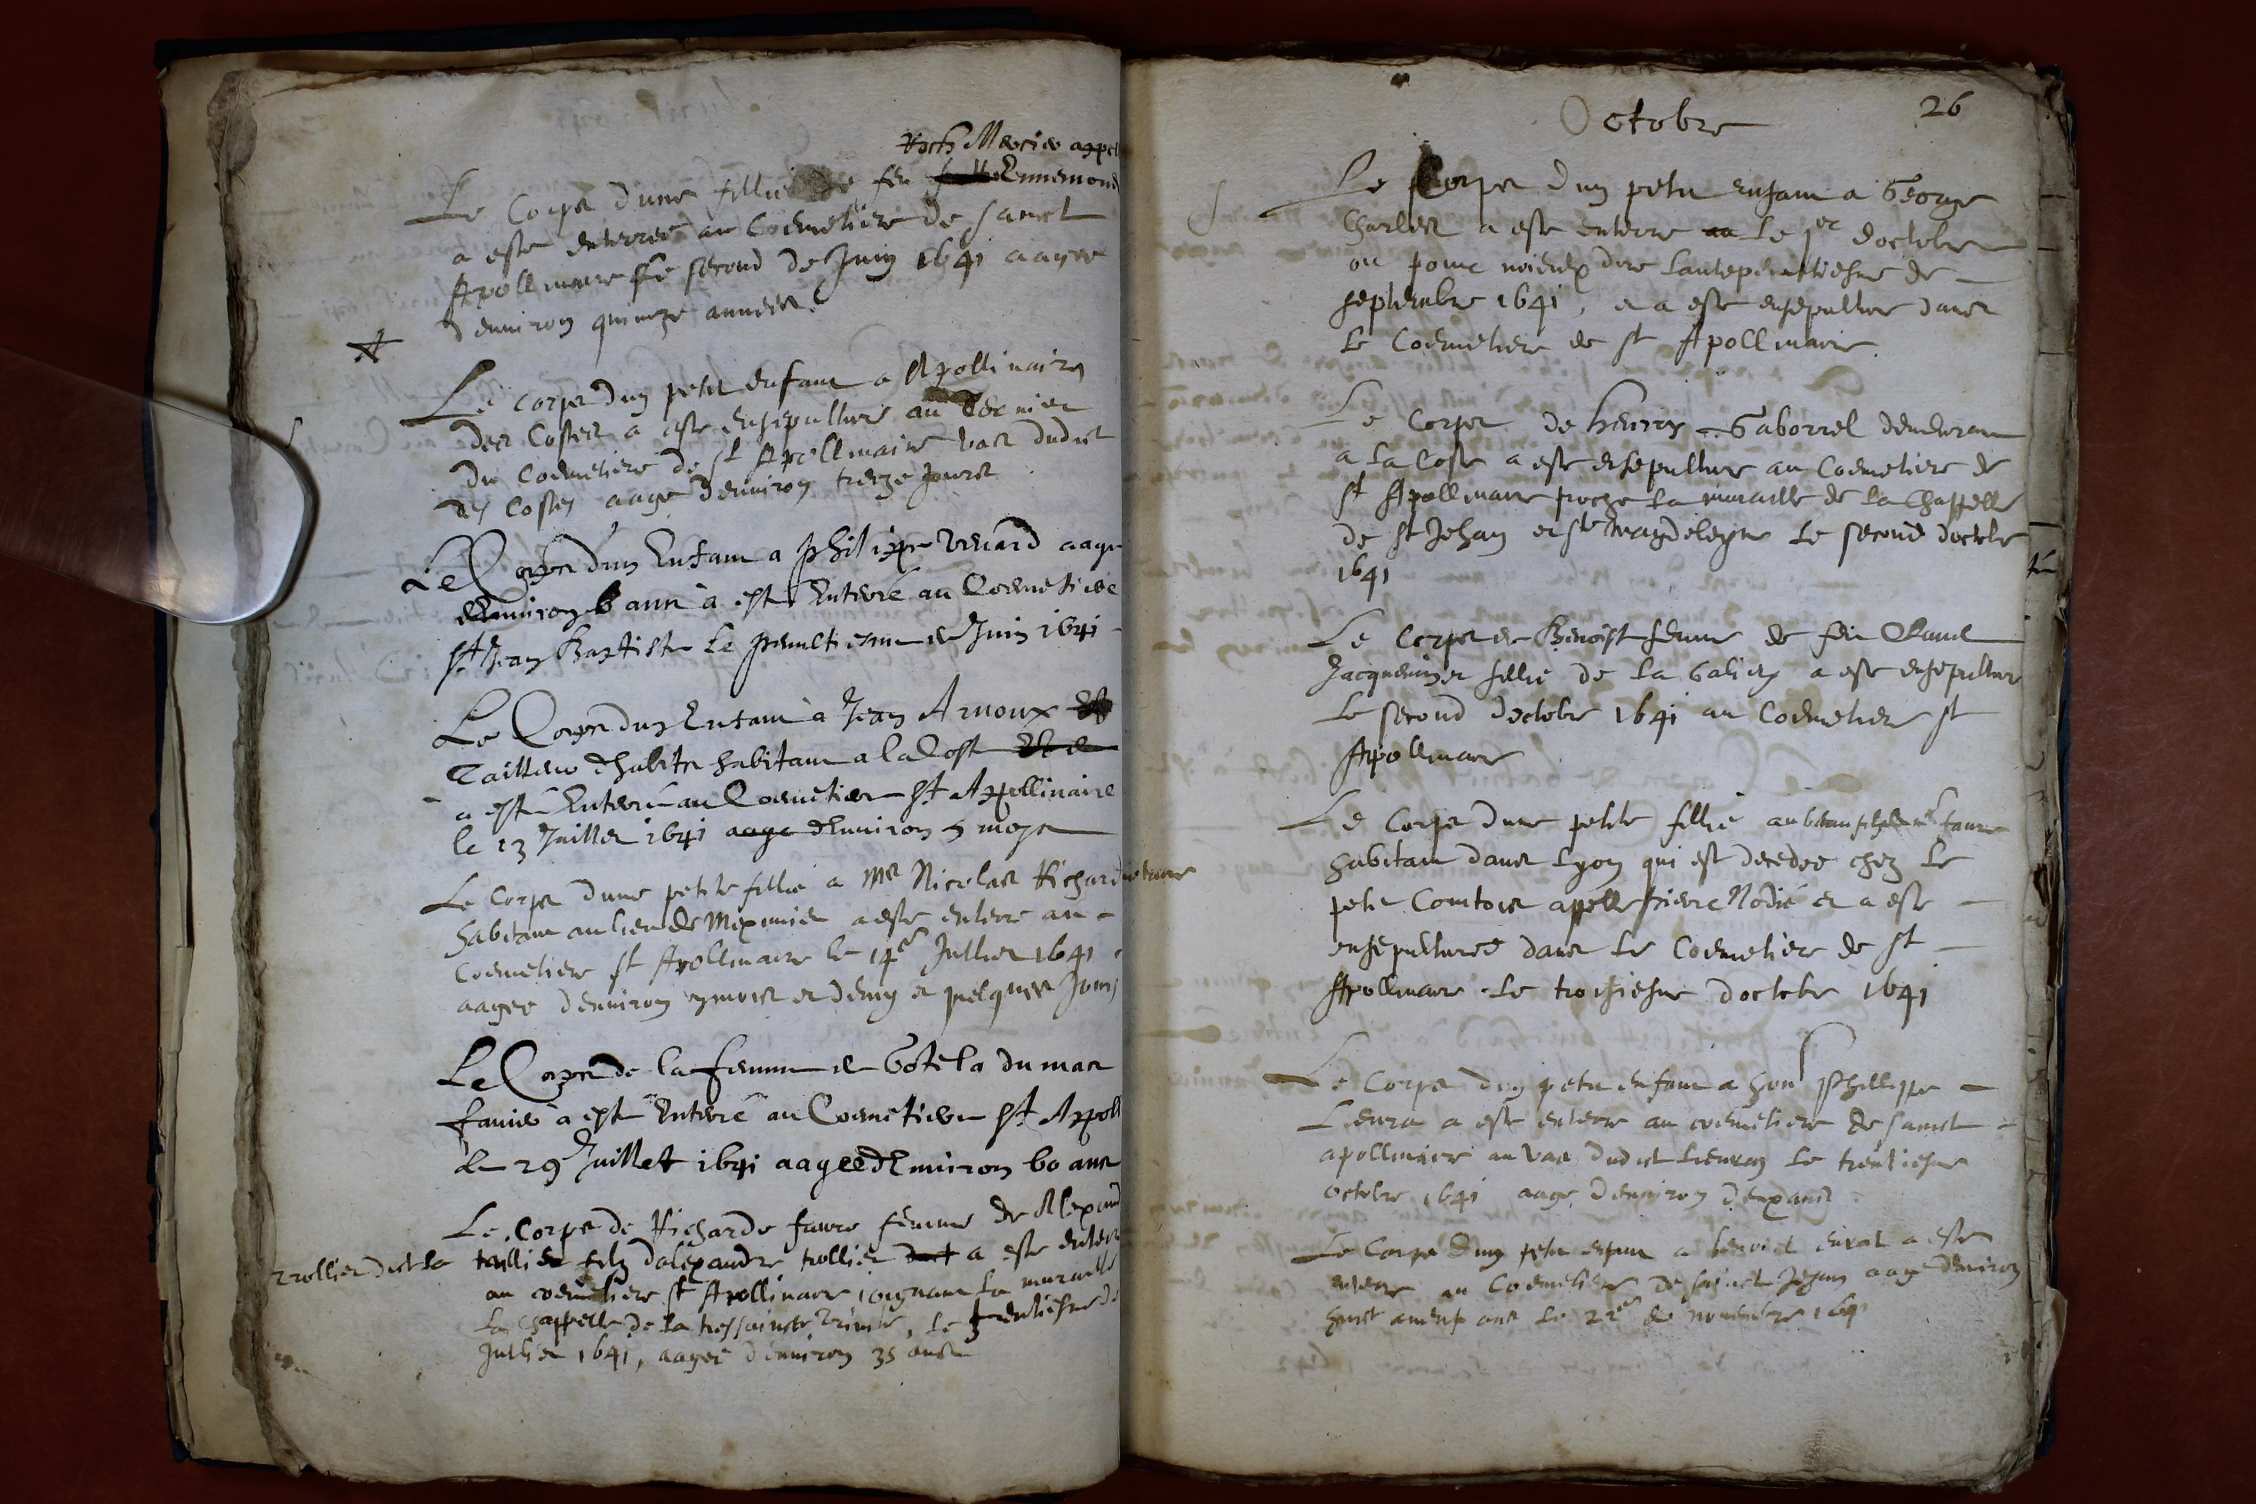 Roch Mercier appel
Le Corps dune fillie de feu Ennemond
a este enterree au Coemetiere de sainct
Apollinaire le second de Juin 1641 aagee
denuiron quinze annees
Le corps dun petit enfant a Apollinaire
des Costes a este ensepulturé au dernier
du Coemetiere de st Apollinaire vas dudict
des Costes aage denuiron treize jours
Le Corps d'un Enfant a Philippe aage
denuiron 6 ans a este Enterré au Coemetiere
st Jean Baptiste le penultiesme de Juin 1641
Le Corps dun Enfant a Jean Arnoux
Tailleur dhabits habitant a la Coste
a esté Enterré au Coemetiere st Appollinaire
le 23 Juillet 1641 aage denuiron 5 moys
Le Corps dune petite fillie a Mr Nicolas Richard notaire
habitant au lieu de Miximieu a este enterre au
Coemetiere st Apollinaire le 14e Jullet 1641
aagee denuiron mois et demy et quelques Jours
Le Corps de la femme de du mas
a esté Enterré au Coemetiere st Appoll
le 29 Juillet 1641 aagee denuiron 60 ans
Le Corps de Richarde faure femme de Alexand
trollier dict la fils dalexandre trollier a este enterr
au coemetiere st Apollinaire joignant la muraille
la chappelle de la tressaincte Trinité, le trentiesme de
Jullet 1641, aagee denuiron 35 ans
Octobre 26
Le Corps dun petit enfant a George
Charles a este enterre le 1er doctobre
ou pour mieux dire lantepenultiesme de
septembre 1641, et a este ensepulture dans
le Coemetiere de st Apollinaire
Le Corps de henry Gaborrel demeurant
a la Coste a este ensepulture au Coemetiere de
st Apollinaire proche la muraille de la Chappelle
de st Jehan et ste Magdeleyne le second doctobre
1641
Le Corps de Benoiste femme de feu Claude
fillie de la a este ensepulture
le second doctobre 1641 au Coemetiere st
Apollinaire
Le Corps dune petite fillie faure
habitant dans Lyon qui est decedee chez le
petit Comtois apellé pierre Nodié et a este
ensepulturee dans le Coemetiere de st
Apollinaire le troisiesme doctobre 1641
Le Corps dun petit enfant a hon Phillippe
a este enterre au coemetiere de sainct
apollinaire au vas dudict le trentiesme
octobre 1641 aage denuiron deux ans
Le Corps dun petit enfant a benoict a este
enterre au Coemetiere de sainct Jehan aage denuiron
ans le 22e de nouembre 1641